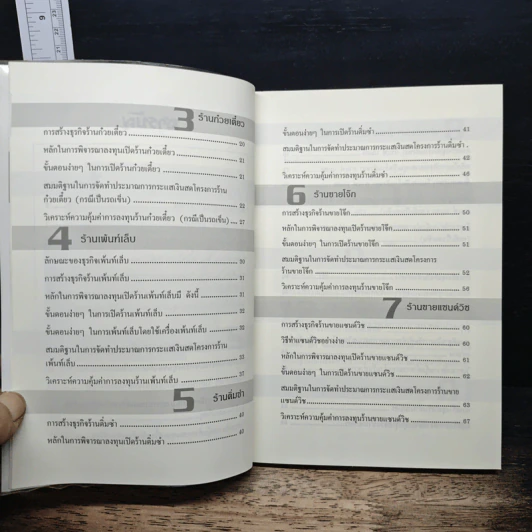 3 ร้านก๋วยเตี๋ยว
การสร้างธุรกิจร้านก๋วยเตี๋ยว 20
หลักในการพิจารณาลงทุนเปิดร้านก๋วยเตี๋ยว 21
ขั้นตอนง่ายๆ ในการเปิดร้านก๋วยเตี๋ยว 21
สมมติฐานในการจัดทำประมาณการกระแสเงินสดโครงการร้าน
ก๋วยเตี๋ยว (กรณีเป็นรถเข็น) 22
วิเคราะห์ความคุ้มค่าการลงทุนร้านก๋วยเตี๋ยว (กรณีเป็นรถเข็น) 27
4 ร้านเพ้นท์เล็บ
ลักษณะของธุรกิจเพ้นท์เล็บ 30
การสร้างธุรกิจร้านเพ้นท์เล็บ 31
หลักในการพิจารณาลงทุนเปิดร้านเพ้นท์เล็บมี ดังนี้ 31
ขั้นตอนง่ายๆ ในการเปิดร้านเพ้นท์เล็บ 32
ขั้นตอนง่ายๆ ในการเพ้นท์เล็บโดยใช้เครื่องเพ้นท์เล็บ 32
สมมติฐานในการจัดทำประมาณการกระแสเงินสดโครงการร้าน
เพ้นท์เล็บ 33
วิเคราะห์ความคุ้มค่าการลงทุนร้านเพ้นท์เล็บ 37
5 ร้านติ่มซำ
การสร้างธุรกิจร้านติ่มซำ 40
หลักในการพิจารณาลงทุนเปิดร้านติ่มซำ 40
ขั้นตอนง่ายๆ ในการเปิดร้านติ่มซำ 41
สมมติฐานในการจัดทำประมาณการกระแสเงินสดโครงการร้านติ่มซำ
42
วิเคราะห์ความคุ้มค่าการลงทุนร้านติ่มซำ 46
6 ร้านขายโจ๊ก
การสร้างธุรกิจร้านขายโจ๊ก 50
หลักในการพิจารณาลงทุนเปิดร้านขายโจ๊ก 51
ขั้นตอนง่ายๆ ในการเปิดร้านขายโจ๊ก 51
สมมติฐานในการจัดทำประมาณการกระแสเงินสดโครงการ
ร้านขายโจ๊ก 52
วิเคราะห์ความคุ้มค่าการลงทุนร้านขายโจ๊ก 56
7 ร้านขายแซนด์วิช
การสร้างธุรกิจร้านขายแซนด์วิช 60
วิธีทำแซนด์วิชอย่างง่าย 60
หลักในการพิจารณาลงทุนเปิดร้านขายแซนด์วิช 61
ขั้นตอนง่ายๆ ในการเปิดร้านขายแซนด์วิช 62
สมมติฐานในการจัดทำประมาณการกระแสเงินสดโครงการร้านขาย
แซนด์วิช 63
วิเคราะห์ความคุ้มค่าการลงทุนร้านขายแซนด์วิช 67